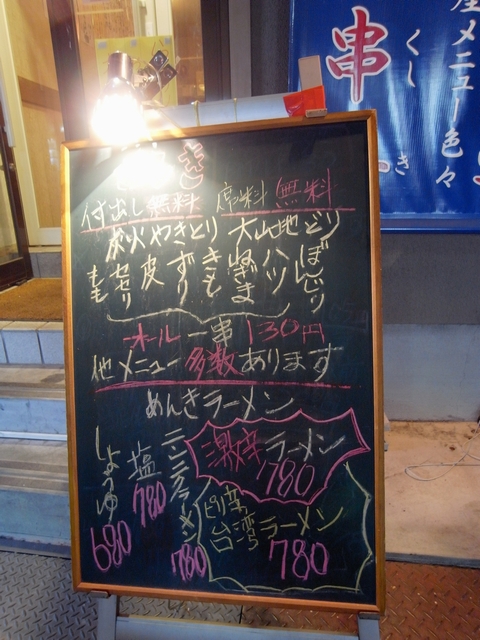 串
くし
メニュー色々
き
付出し無料 席料無料
炭火やきとり 大山地どり
もも
セセリ
皮
ずり
きも
ねぎま
ハツ
ぼんじり
オール一串130円
他メニュー多数あります
めんきラーメン
しょうゆ
680
塩
780
ニンニクラーメン
780
激辛ラーメン
780
ピリ辛
台湾ラーメン
780